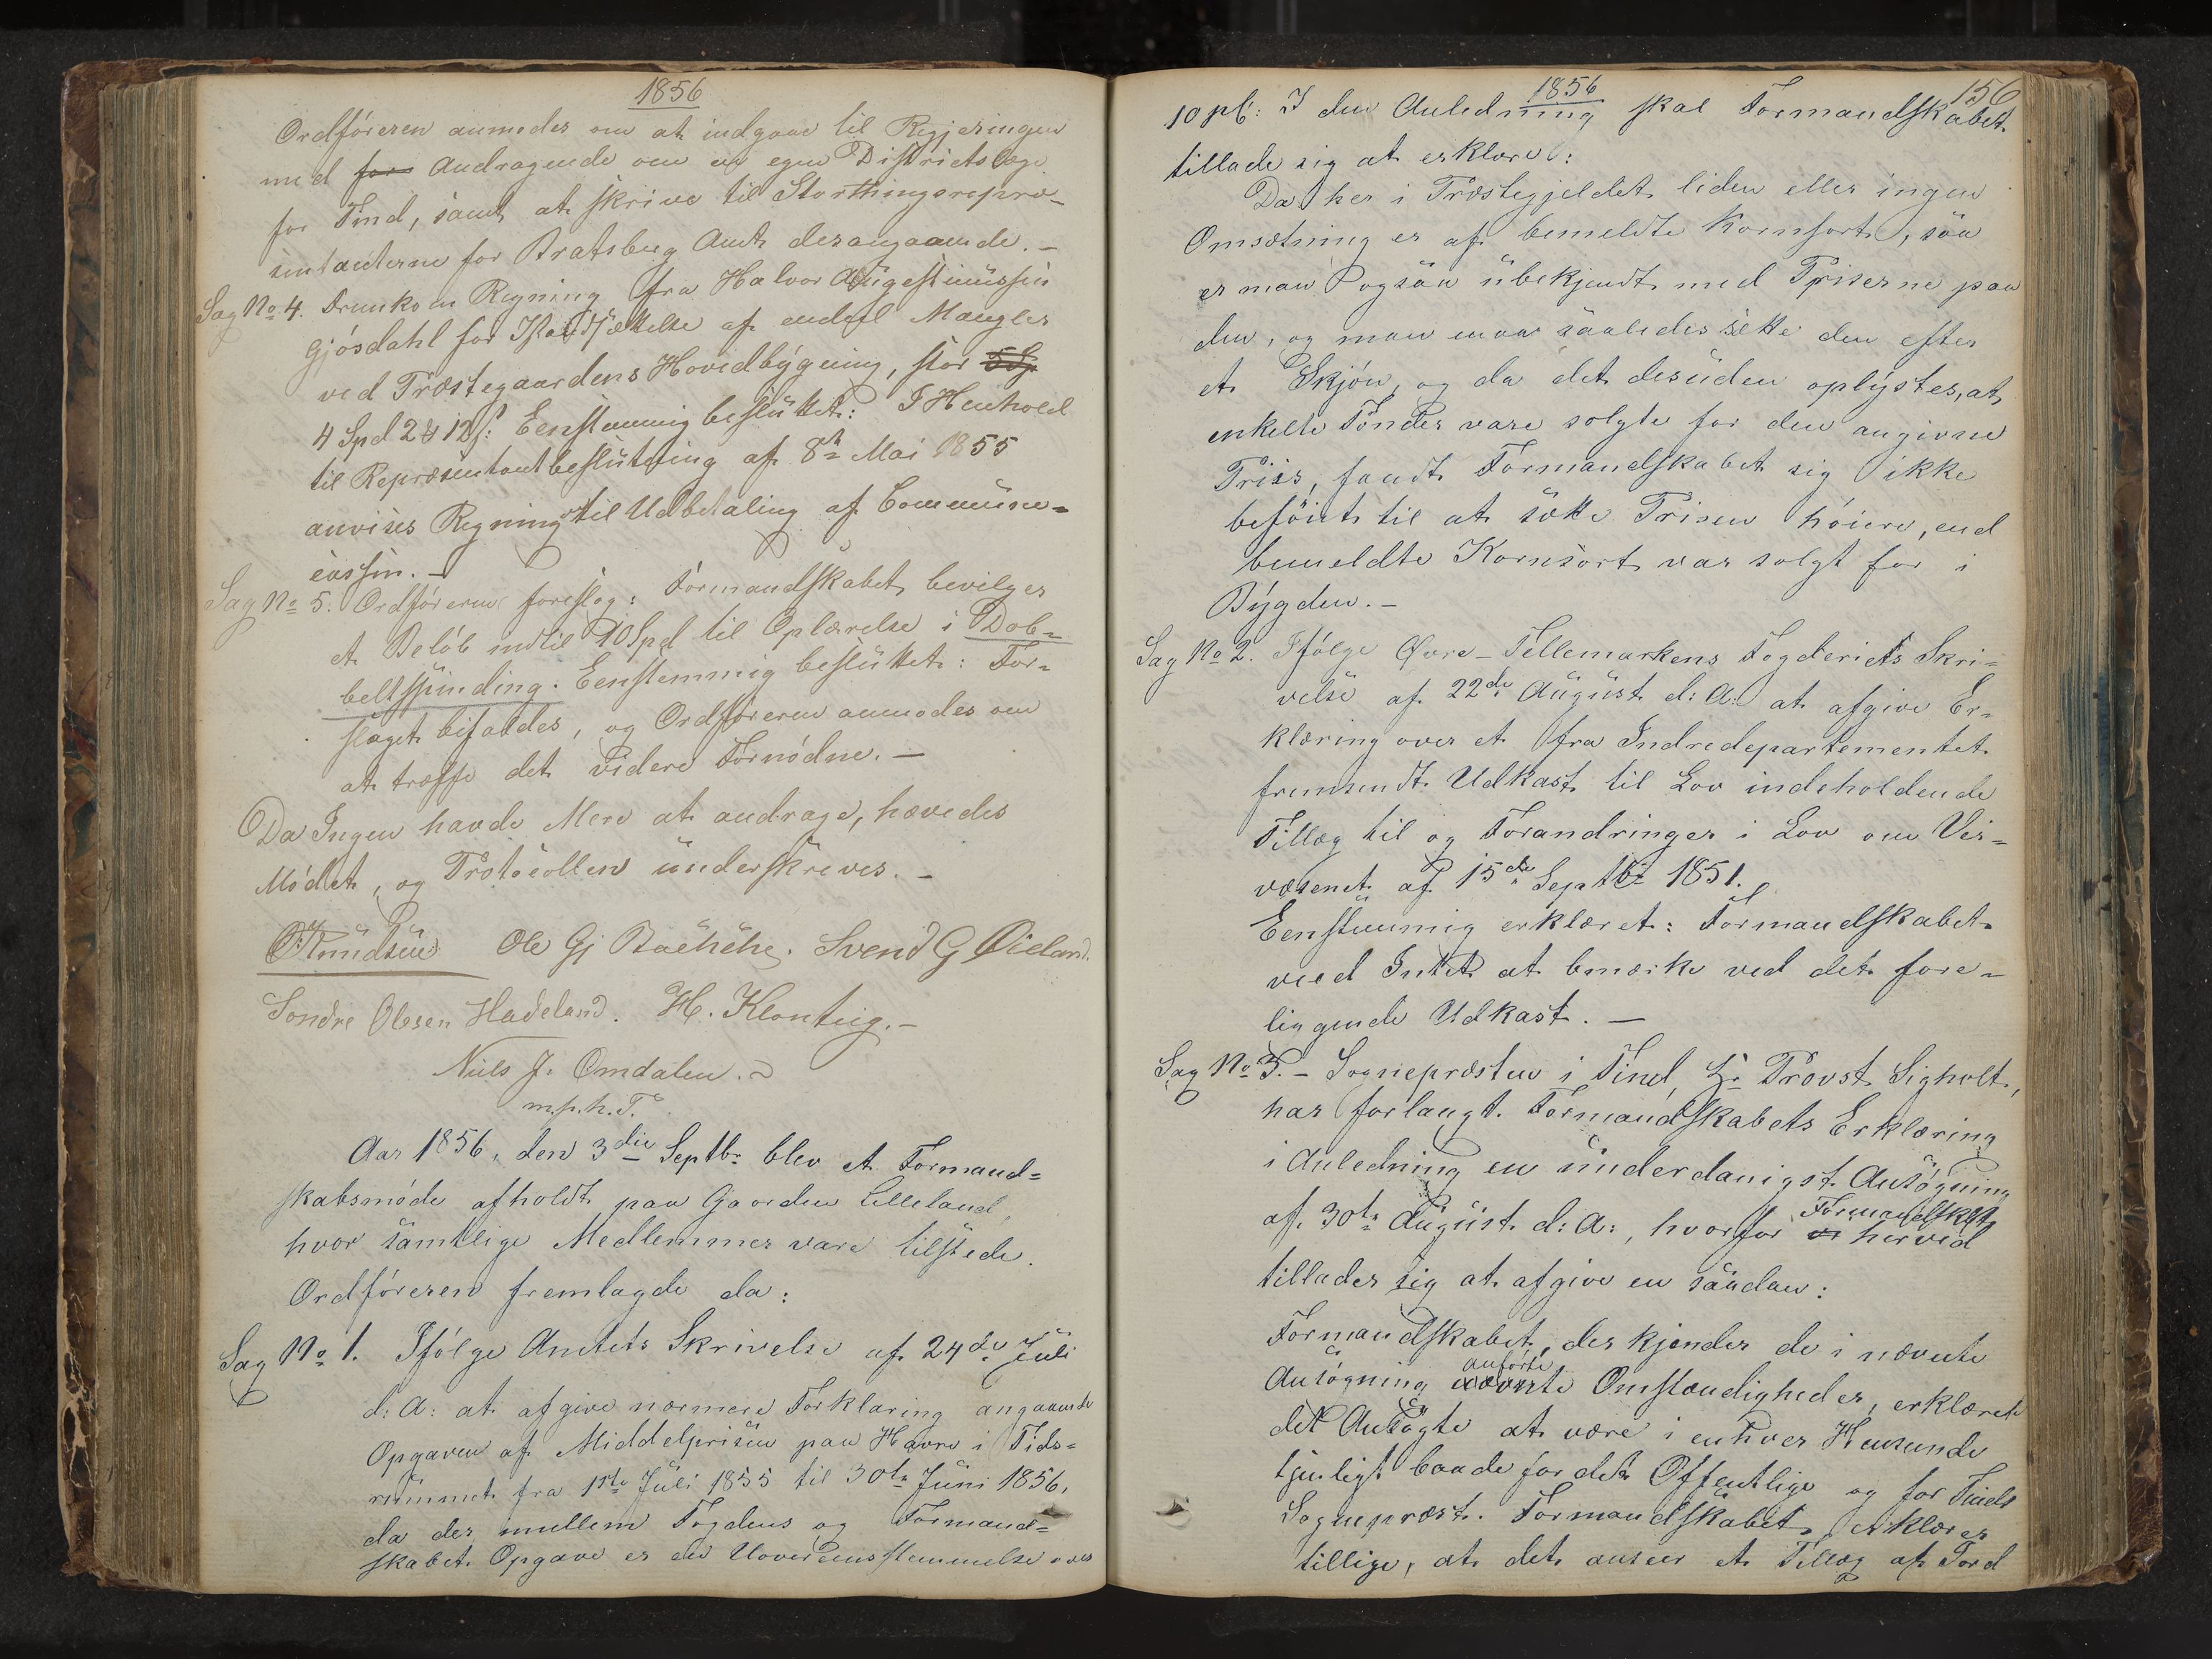 1856
Ordføreren anmodes om at indgaae til Regjeringen
med for Andragende om en egen Districtslæge
for Tind, samt at skrive til Storthingsrepræ-
sentanterne for Bratsberg Amt desangaaende. -
Sag No 4. Fremkom Regning fra Halvor Augestinussen
Gjøsdahl for Istandsættelse af endeel Mangler
ved Præstegaardens Hovedbygning, stor 5 Sp
4 Spd 2 ₰ 12 s: Eenstemmig besluttet: I Henhold
til Repræsentantbeslutning af 8de Mai 1855
anvises Regning til Udbetaling af Commune-
cassen. -
Sag No 5. Ordføreren foreslog: Formandskabet bevilger
et Beløb indtil 10 Spd til Oplærelse i Dob-
beltspinding. Eenstemmig besluttet: For-
slaget bifaldes, og Ordføreren anmodes om
at træffe det videre Fornødne. -
Da Ingen havde Mere at andrage, hævedes
Mødet, og Protocollen underskreves. -
O. Knudsen Ole Gj Svend G Øieland.
Sondre Olesen Hadeland. H. Klonteig. -
Niels J. Omdalen.
m. p. h. P.
Aar 1856, den 3die Septbr blev et Formand-
skabsmøde afholdt paa Gaarden Lilleland,
hvor samtlige Medlemmer vare tilstede.
Ordføreren fremlagde da:
Sag No 1. Ifølge Amtets Skrivelse af 24de Juli
d: A: at afgive nærmere Forklaring angaaende
Opgaven af Middelprisen paa Havre i Tids-
rummet fra 1ste Juli 1855 til 30te Juni 1856,
da der mellem Fogdens og Formand-
skabet Opgave er en Uovereensstemmelse
1856
156
10 I den Anledning skal Formandskabet
tillade sig at erklære:
Da her i Præstegjeldet liden eller ingen
Omsætning er af bemeldte Kornsort, saa
er man ogsaa ubekjendt med Priserne paa
den, og man maa saaledes sætte den efter
et Skjøn, og da det desuden oplystes, at
enkelte Tønder vare solgte for den angivne
Priis, fandt Formandskabet sig ikke
beføiet til at sætte Prisen høiere, end
bemeldte Kornsort var solgt for i
Bygden. -
Sag No 2. Ifølge Øvre-Tellemarkens Fogderiets Skri-
velse af 22de August d: A: at afgive Er-
klæring over et fra Indredepartementet
fremsendt Udkast til Lov indeholdende
Tillæg til og Forandringer i Lov om Vei-
væsenet af 15de Septbr 1851.
Eenstemmig erklæret: Formandskabet
veed Intet at bemærke ved det fore-
liggende Udkast. -
Sag No 3. - Sognepræsten i Tind, Hr Provst Sigholt,
har forlangt Formandskabets Erklæring
i Anledning en underdanigst Ansøgning
af 30te August d: A:, hvorfor Formandskbt hervid
tillader sig at afgive en saadan:
Formandskabet, der kjender de i nævnte
Ansøgning anførte Omstændigheder, erklærer
det Ansøgte at være i enhver Henseende
tjenligt baade for det Offentlige og for Tinds
Sognepræst. Formandskabet erklærer
tillige, at det anseer et Tillæg af Jord